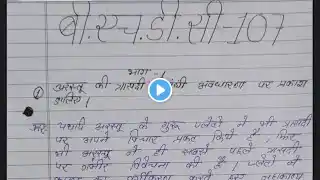 बी.एच.डी.सी-107
भाग-1
① अरस्तू की त्रासदी अवधारणा पर प्रकाश
डालिए।
उत्तर यद्यपि अरस्तू के गुरु प्लेटो ने भी त्रासदी
पर अपने विचार प्रकट किये हैं, फिर
भी अरस्तू ने ही सबसे पहले त्रासदी
पर गंभीर विवेचना की है। प्लेटो ने